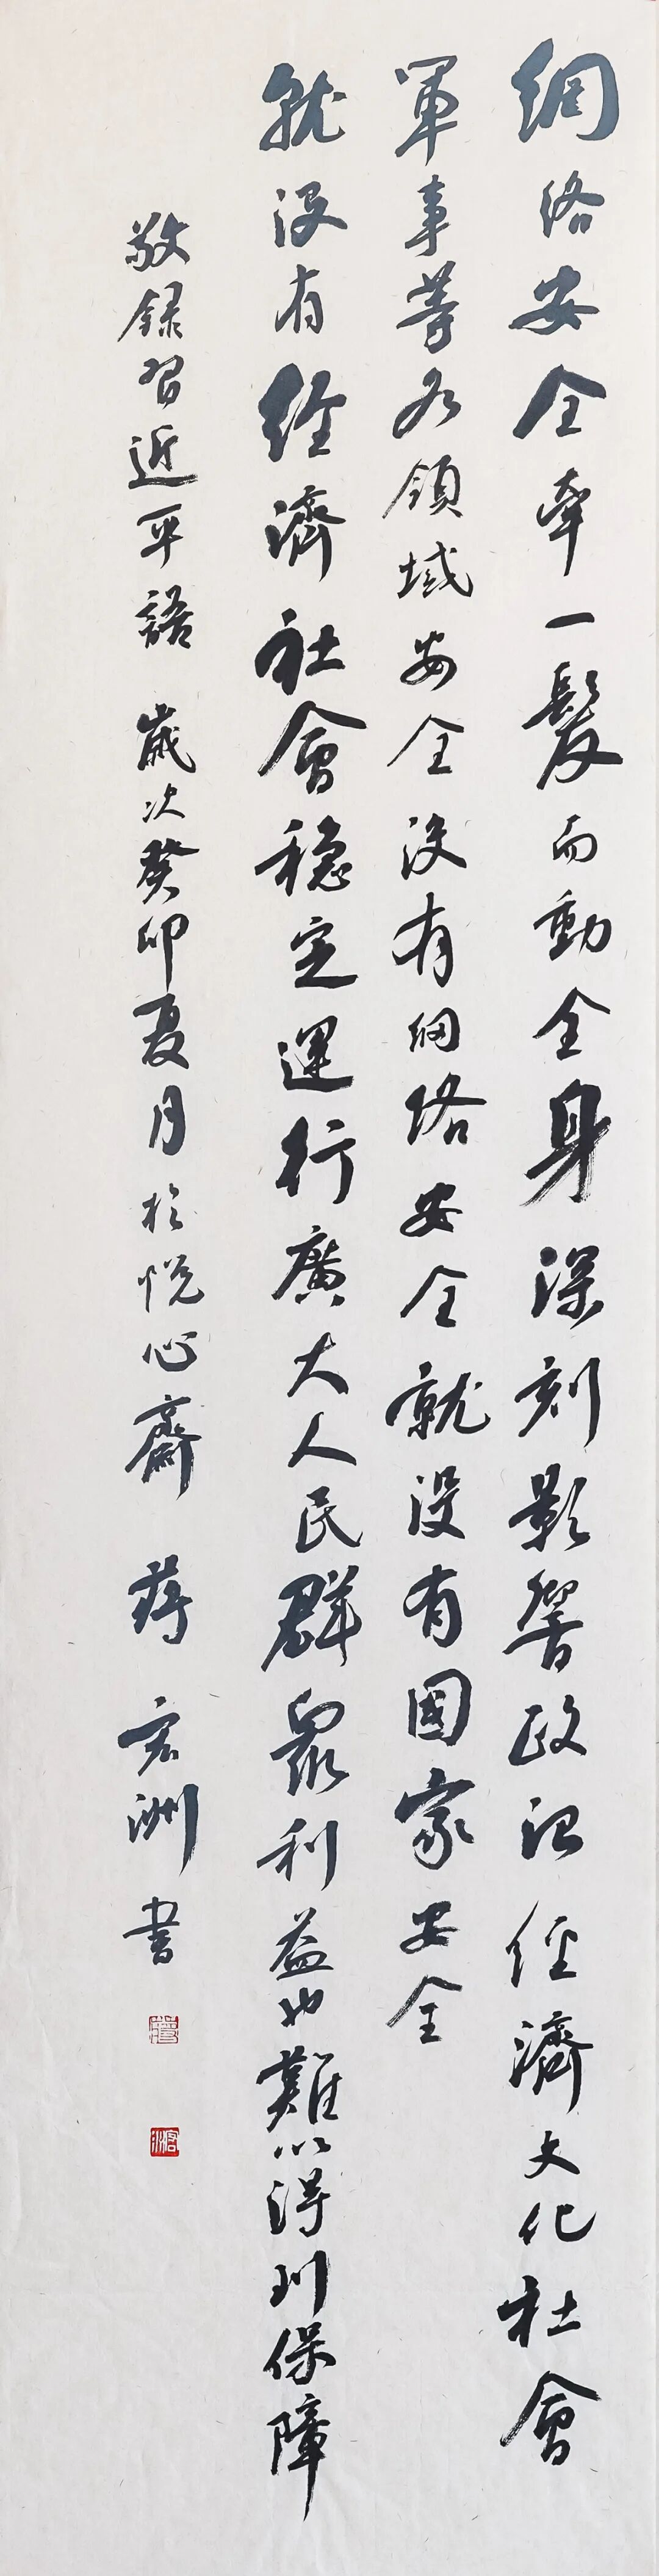 網絡安全牽一髮而動全身深刻影響政治經濟文化社會
軍事等各領域安全没有網絡安全就没有國家安全
就没有經濟社會穩定運行廣大人民群眾利益也難以得到保障
敬録習近平語 歲次癸卯夏月於悦心齋 蔣宏洲書